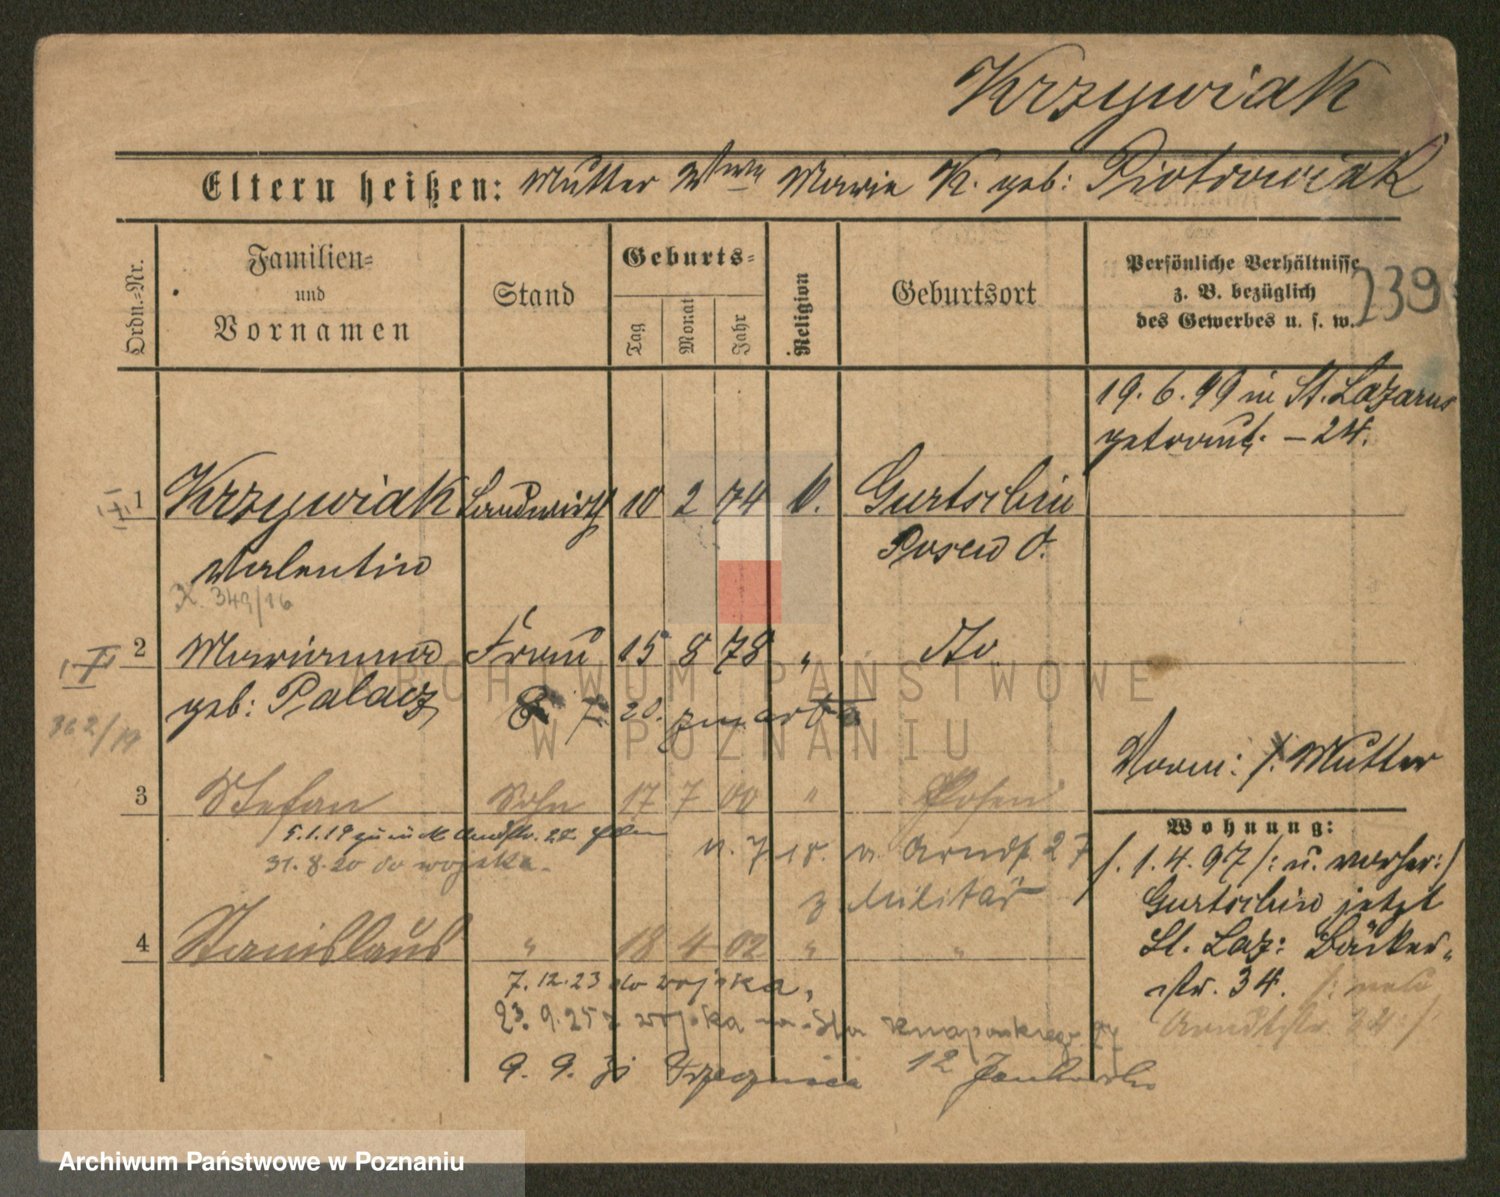 Krzywiak
Eltern heißen: Mutter Wwe Marie K. geb: Piotrowiak
Ordn.=Nr.
Familien=
und
Vornamen
Stand
Geburts=
Tag
Monat
Jahr
Religion
Geburtsort
Persönliche Verhältnisse
z. B. bezüglich
des Gewerbes u. s. w.
239
19. 6. 99 in St. Lazarus
getraut. – 24.
1 Krzywiak Landwirth 10 2 74 Gurtschin
Valentin Posen O.
X. 349/16
2 Marianna Frau 15 8 78 " dto
geb: Palacz
20.
362/19
Vorm: Mutter
3 Stefan Sohn 17 7 00 " Posen
5.1.19 zurück Arndtstr. 27
31. 8. 20 do wojska.
18. Arndt. 27
z Militär
Wohnung:
1. 4. 97 /: u. vorher :/
Gurtschin jetzt
St. Laz: Bäcker-
str. 34. /: neu
Arndtstr. 34 :/
4 Stanislaus " 18 4 02 " "
7. 12. 23 do wojska,
23. 9. 25 z wojska
9. 9. 12
ARCHIWUM PAŃSTWOWE
W POZNANIU
Archiwum Państwowe w Poznaniu